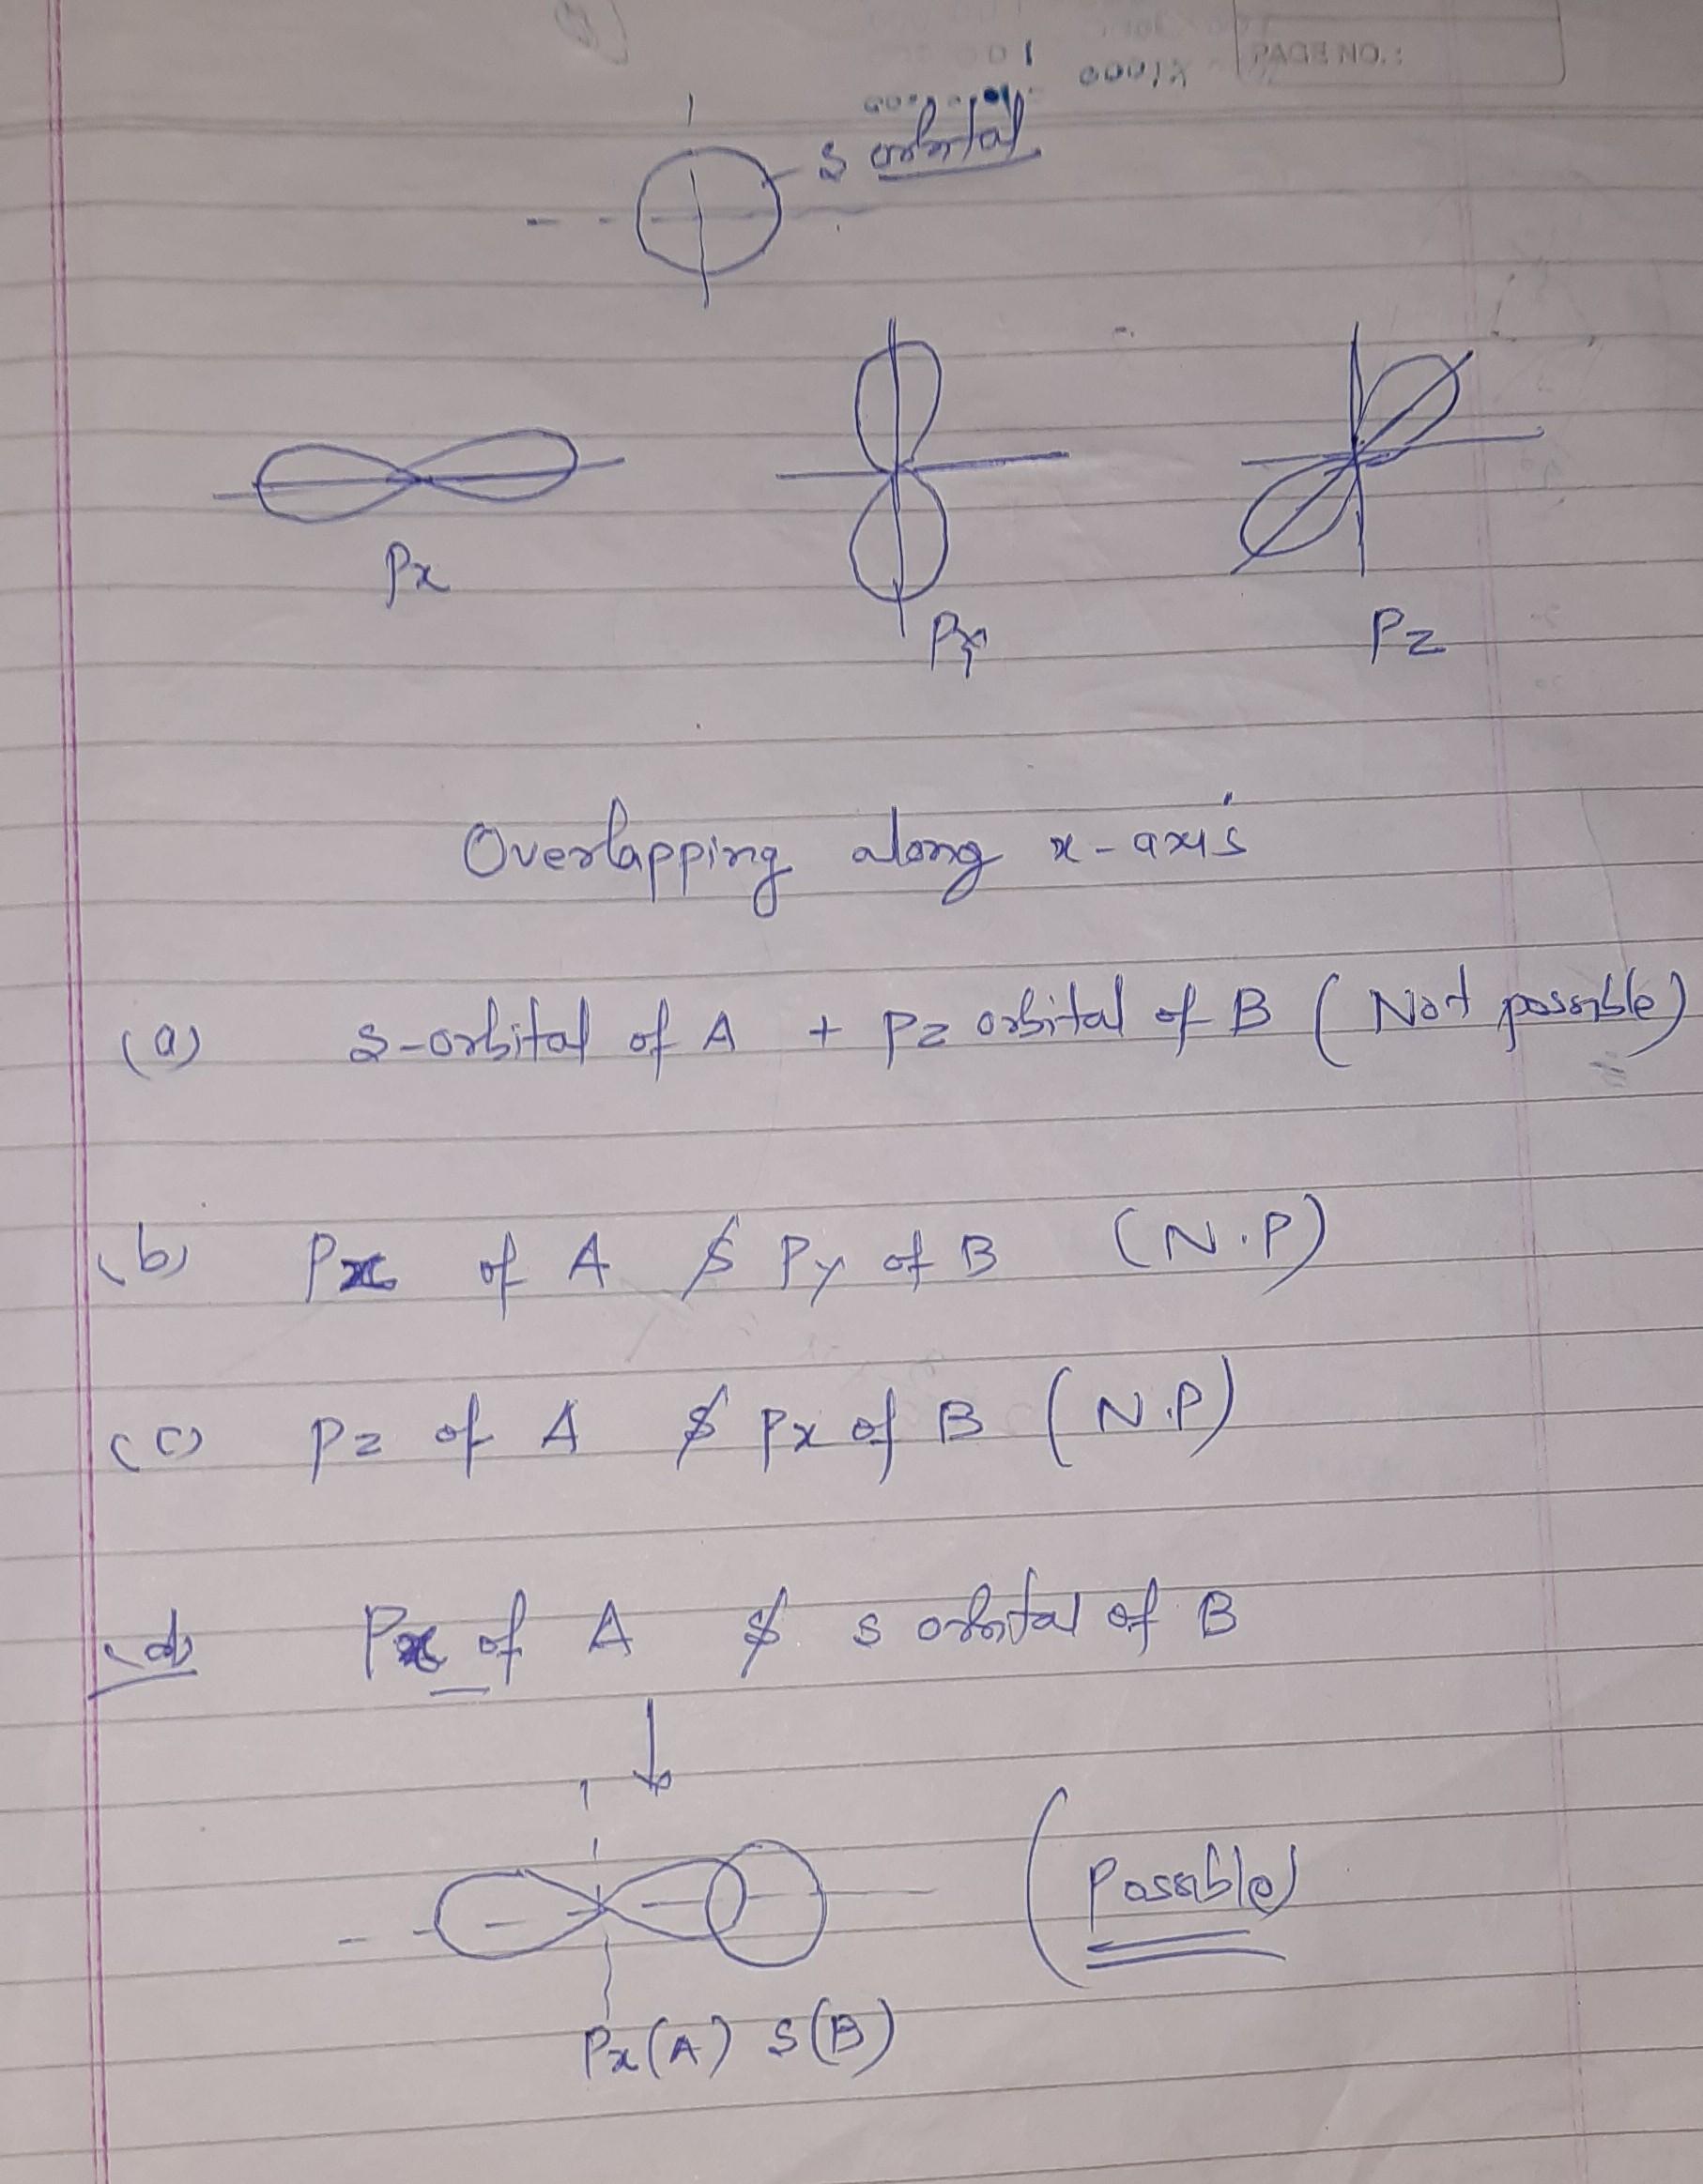 PAGE NO. :
s orbital
Px
Py
Pz
Overlapping along x-axis
(a) s-orbital of A + Pz orbital of B (Not possible)
(b) Px of A & Py of B (N.P)
(c) Pz of A & Px of B (N.P)
(d) Px of A & s orbital of B
(Possible)
Px(A) S(B)